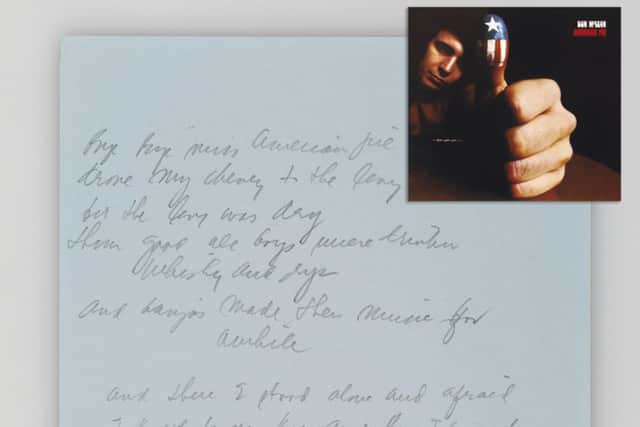 Bye Bye miss American pie
drove my chevey to the levy
but the levy was dry
them good ole boys were drinkin
whisky and rye
and banjos made them music for
awhile
and there I stood alone and afraid
I
DON McLEAN
AMERICAN PIE